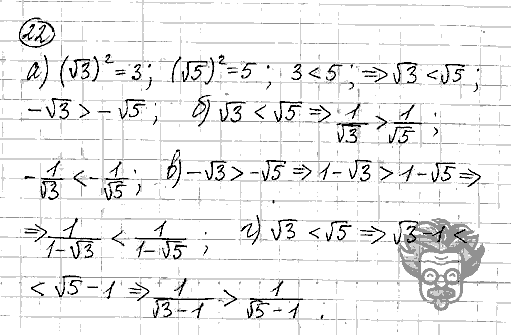 22
а) (√3)² = 3; (√5)² = 5; 3 < 5; ⇒ √3 < √5;
-√3 > -√5; б) √3 < √5 ⇒ 1/√3 > 1/√5;
-1/√3 < -1/√5; в) -√3 > -√5 ⇒ 1-√3 > 1-√5 ⇒
⇒ 1/(1-√3) < 1/(1-√5); г) √3 < √5 ⇒ √3-1 <
< √5-1 ⇒ 1/(√3-1) > 1/(√5-1).